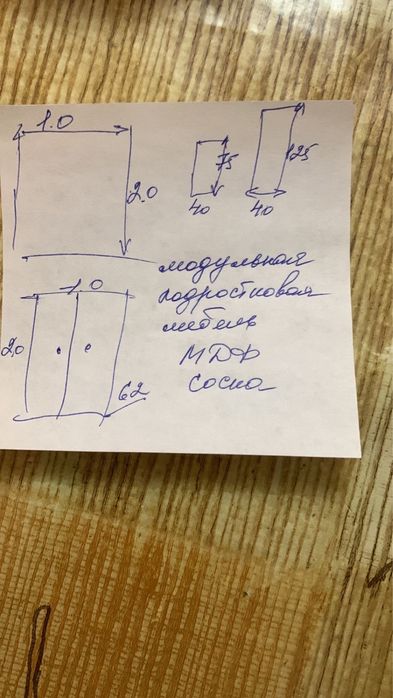 1.0
2.0
75
40
125
40
модульная
подростковая
мебель
МДФ
сосна
1.0
20
62